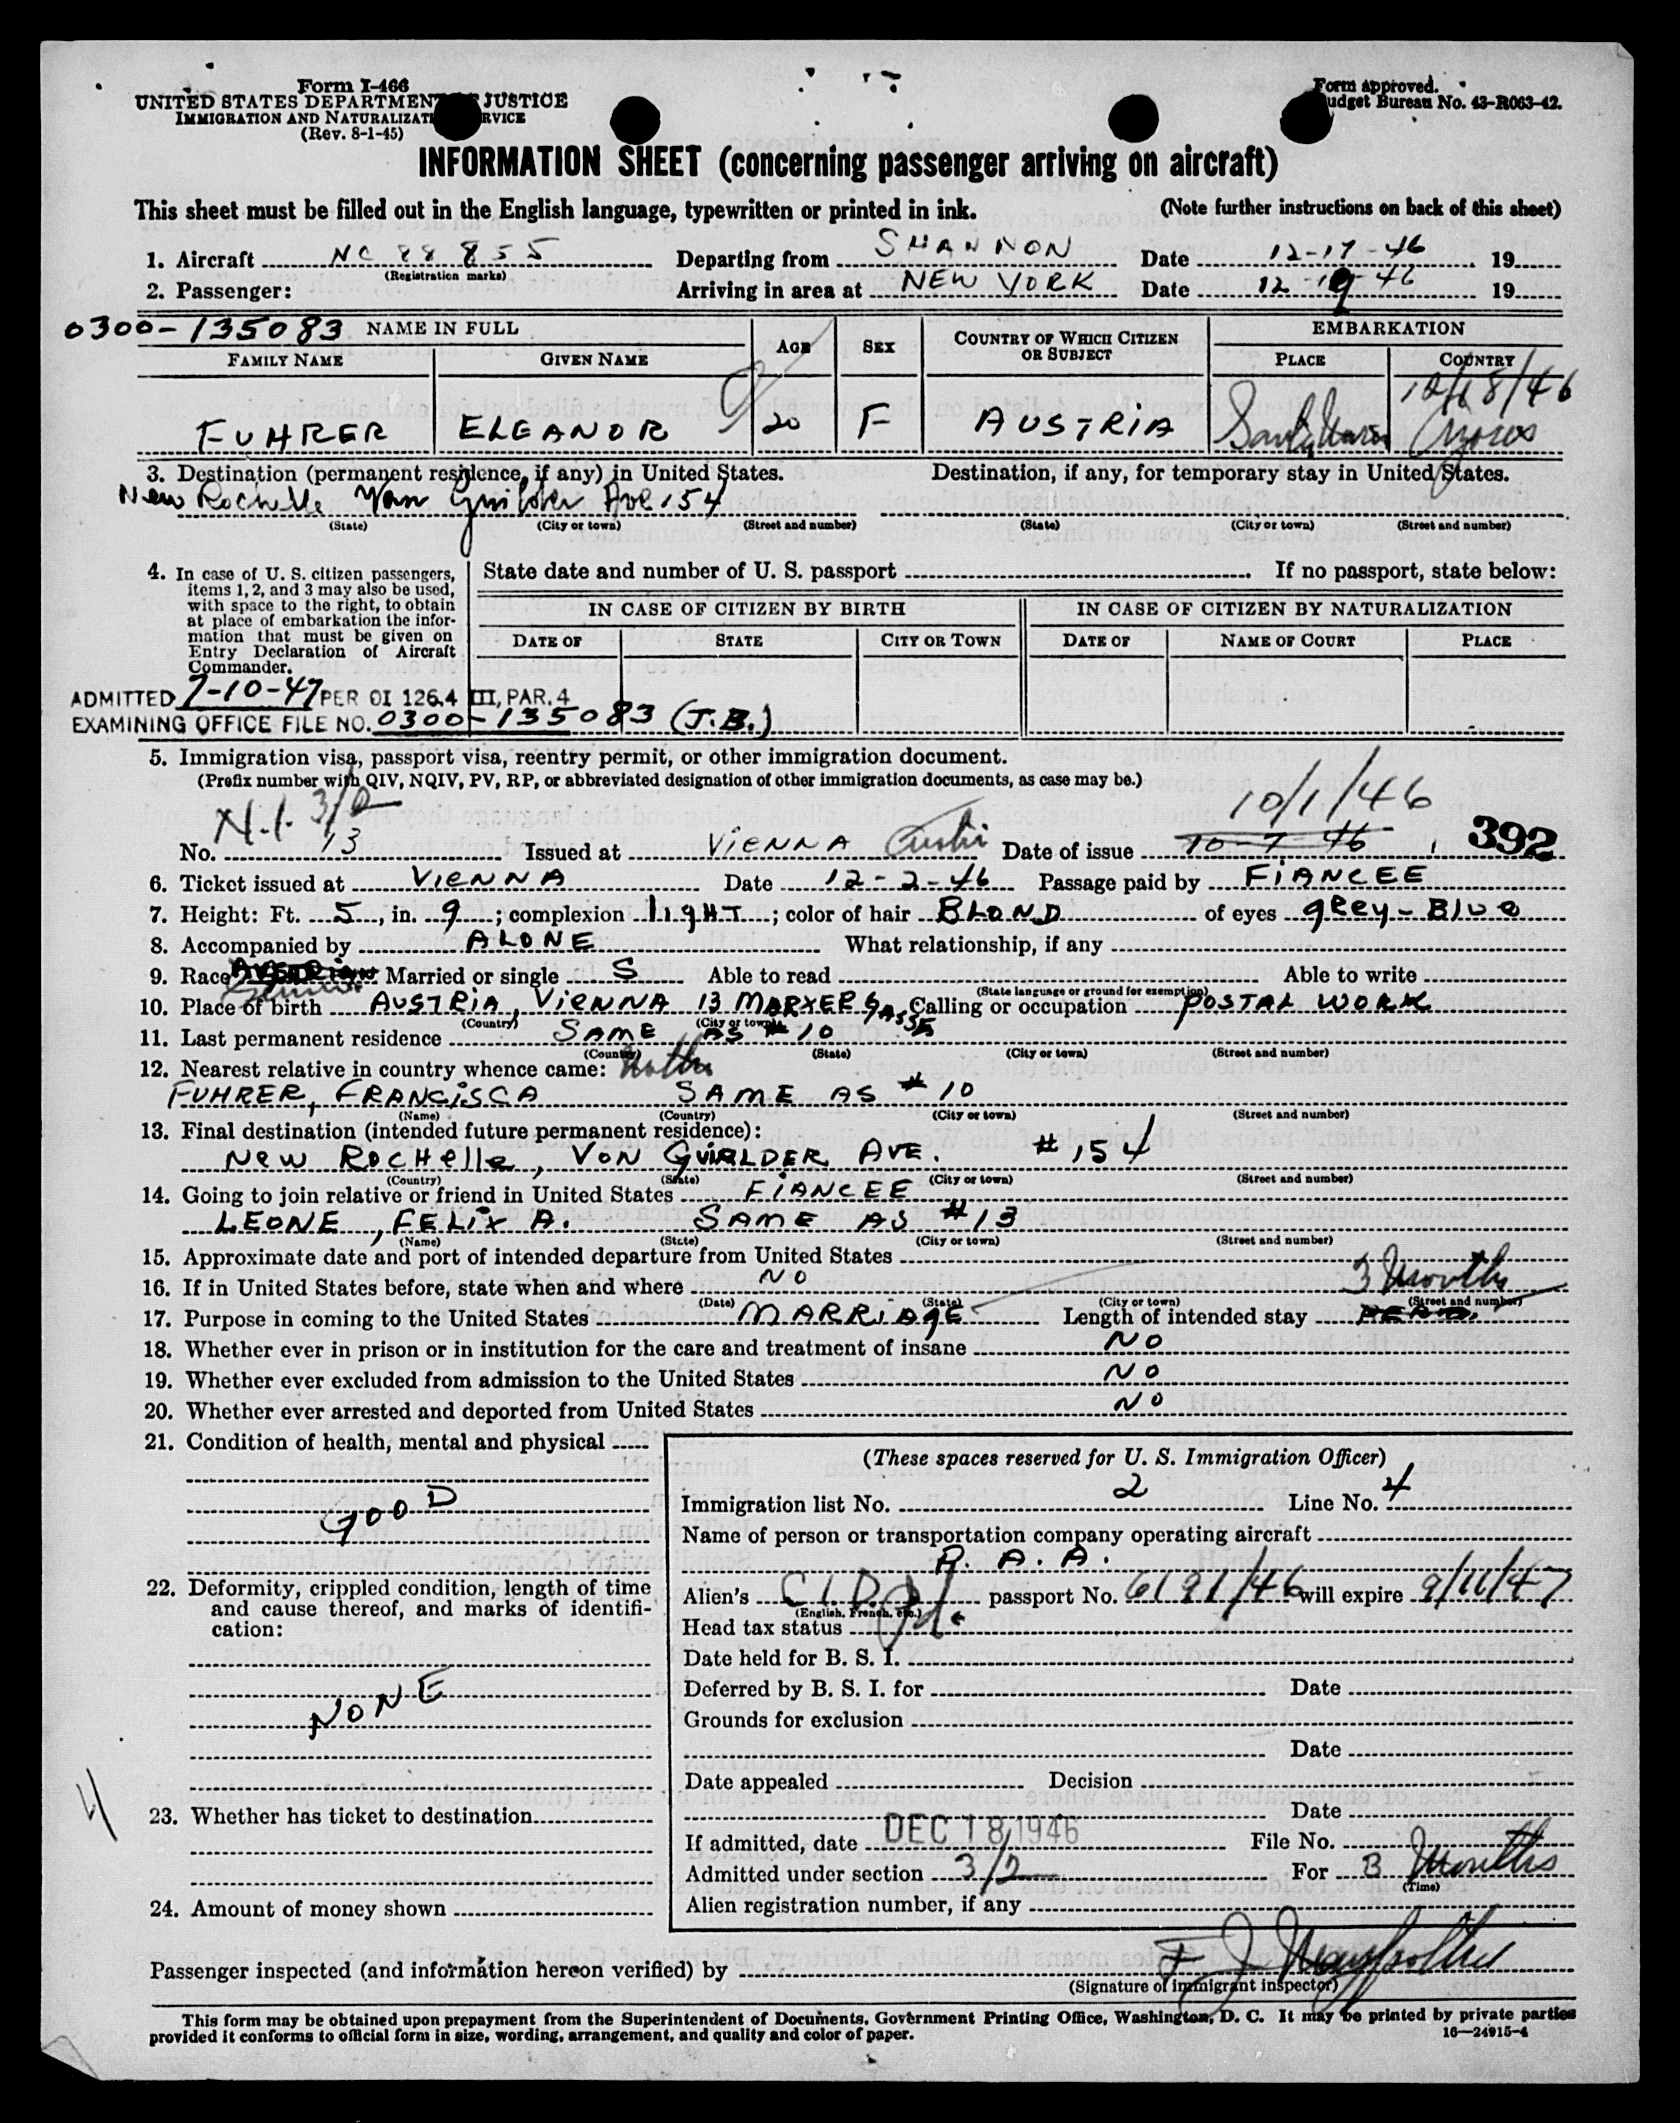 Form I-466
UNITED STATES DEPARTMENT OF JUSTICE
IMMIGRATION AND NATURALIZATION SERVICE
(Rev. 8-1-45)
Form approved.
Budget Bureau No. 43-R063-42.
INFORMATION SHEET (concerning passenger arriving on aircraft)
This sheet must be filled out in the English language, typewritten or printed in ink. (Note further instructions on back of this sheet)
1. Aircraft NC 88 855 Departing from SHANNON Date 12-17-46 19
(Registration marks)
2. Passenger: Arriving in area at NEW YORK Date 12-19-46 19
0300-135083 NAME IN FULL AGE SEX COUNTRY OF WHICH CITIZEN OR SUBJECT EMBARKATION
FAMILY NAME GIVEN NAME PLACE COUNTRY
12/18/46
FUHRER ELEANOR 20 F AUSTRIA
3. Destination (permanent residence, if any) in United States. Destination, if any, for temporary stay in United States.
New Rochelle Van Guilder Ave 154
(State) (City or town) (Street and number) (State) (City or town) (Street and number)
4. In case of U. S. citizen passengers, items 1, 2, and 3 may also be used, with space to the right, to obtain at place of embarkation the information that must be given on Entry Declaration of Aircraft Commander.
State date and number of U. S. passport If no passport, state below:
IN CASE OF CITIZEN BY BIRTH IN CASE OF CITIZEN BY NATURALIZATION
DATE OF STATE CITY OR TOWN DATE OF NAME OF COURT PLACE
ADMITTED 7-10-47 PER OI 126.4 III, PAR. 4
EXAMINING OFFICE FILE NO. 0300-135083 (J.B.)
5. Immigration visa, passport visa, reentry permit, or other immigration document.
(Prefix number with QIV, NQIV, PV, RP, or abbreviated designation of other immigration documents, as case may be.)
N.I. 3/2 10/1/46
No. 13 Issued at VIENNA Date of issue 10-7 46 392
6. Ticket issued at VIENNA Date 12-2-46 Passage paid by FIANCEE
7. Height: Ft. 5, in. 9; complexion LIGHT; color of hair BLOND of eyes GREY-BLUE
8. Accompanied by ALONE What relationship, if any
9. Race AUSTRIAN Married or single S Able to read Able to write
(State language or ground for exemption)
10. Place of birth AUSTRIA, VIENNA 13 MARXERGASSE Calling or occupation POSTAL WORK
(Country) (City or town)
11. Last permanent residence SAME AS # 10
(Country) (State) (City or town) (Street and number)
12. Nearest relative in country whence came: Mother
FUHRER, FRANCISCA SAME AS # 10
(Name) (Country) (City or town) (Street and number)
13. Final destination (intended future permanent residence):
NEW ROCHELLE, VON GUILDER AVE. # 154
(Country) (State) (City or town) (Street and number)
14. Going to join relative or friend in United States FIANCEE
LEONE, FELIX A. SAME AS #13
(Name) (State) (City or town) (Street and number)
15. Approximate date and port of intended departure from United States
16. If in United States before, state when and where NO 3 Months
(Date) (State) (City or town) (Street and number)
17. Purpose in coming to the United States MARRIAGE Length of intended stay
18. Whether ever in prison or in institution for the care and treatment of insane NO
19. Whether ever excluded from admission to the United States NO
20. Whether ever arrested and deported from United States NO
21. Condition of health, mental and physical
GOOD
22. Deformity, crippled condition, length of time and cause thereof, and marks of identification:
NONE
4
23. Whether has ticket to destination
24. Amount of money shown
(These spaces reserved for U. S. Immigration Officer)
Immigration list No. 2 Line No. 4
Name of person or transportation company operating aircraft
P. A. A.
Alien's C.I.D. passport No. 6191/46 will expire 9/11/47
(English, French, etc.)
Head tax status Pd.
Date held for B. S. I.
Deferred by B. S. I. for Date
Grounds for exclusion
Date
Date appealed Decision
Date
If admitted, date DEC 18 1946 File No.
Admitted under section 3/2 For 3 Months
(Time)
Alien registration number, if any
Passenger inspected (and information hereon verified) by
(Signature of immigrant inspector)
This form may be obtained upon prepayment from the Superintendent of Documents, Government Printing Office, Washington, D. C. It may be printed by private parties
provided it conforms to official form in size, wording, arrangement, and quality and color of paper. 16—24915-4